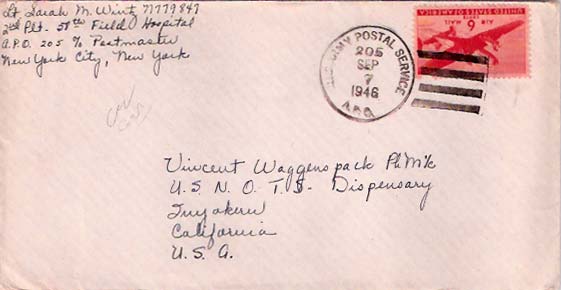 Lt. Sarah M. Wint N779847
2nd Plt. 57th Field Hospital
A.P.O. 205 % Postmaster
New York City, New York
U.S. ARMY POSTAL SERVICE
205
SEP
7
1946
A.P.O.
UNITED STATES OF AMERICA
AIR MAIL
6¢
Vincent Waggenspack PhM1/c
U. S. N. O. T. S. Dispensary
Inyokern
California
U. S. A.